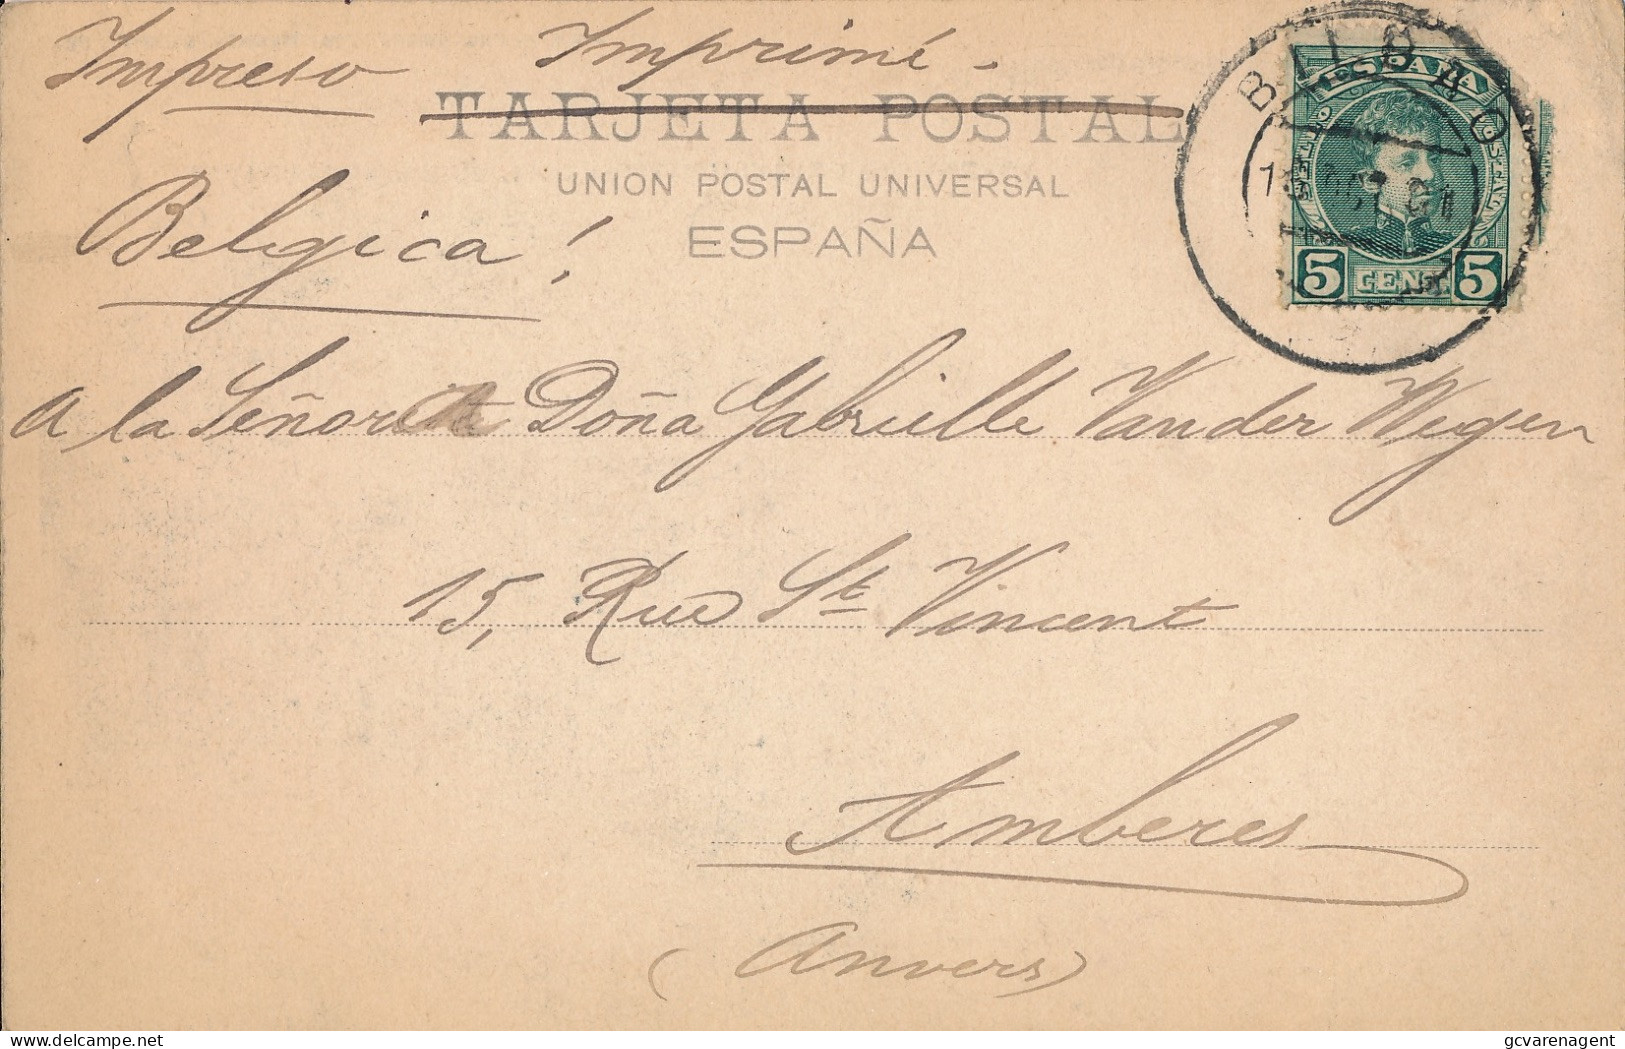 Impreso Imprimé -
TARJETA POSTAL
UNION POSTAL UNIVERSAL
ESPAÑA
Belgica!
BILBAO
ESPAÑA
5 CENT. 5
a la Señorita Doña Gabrielle Vander Wegen
15, Rue St Vincent
Amberes
(Anvers)
gcvarenagent